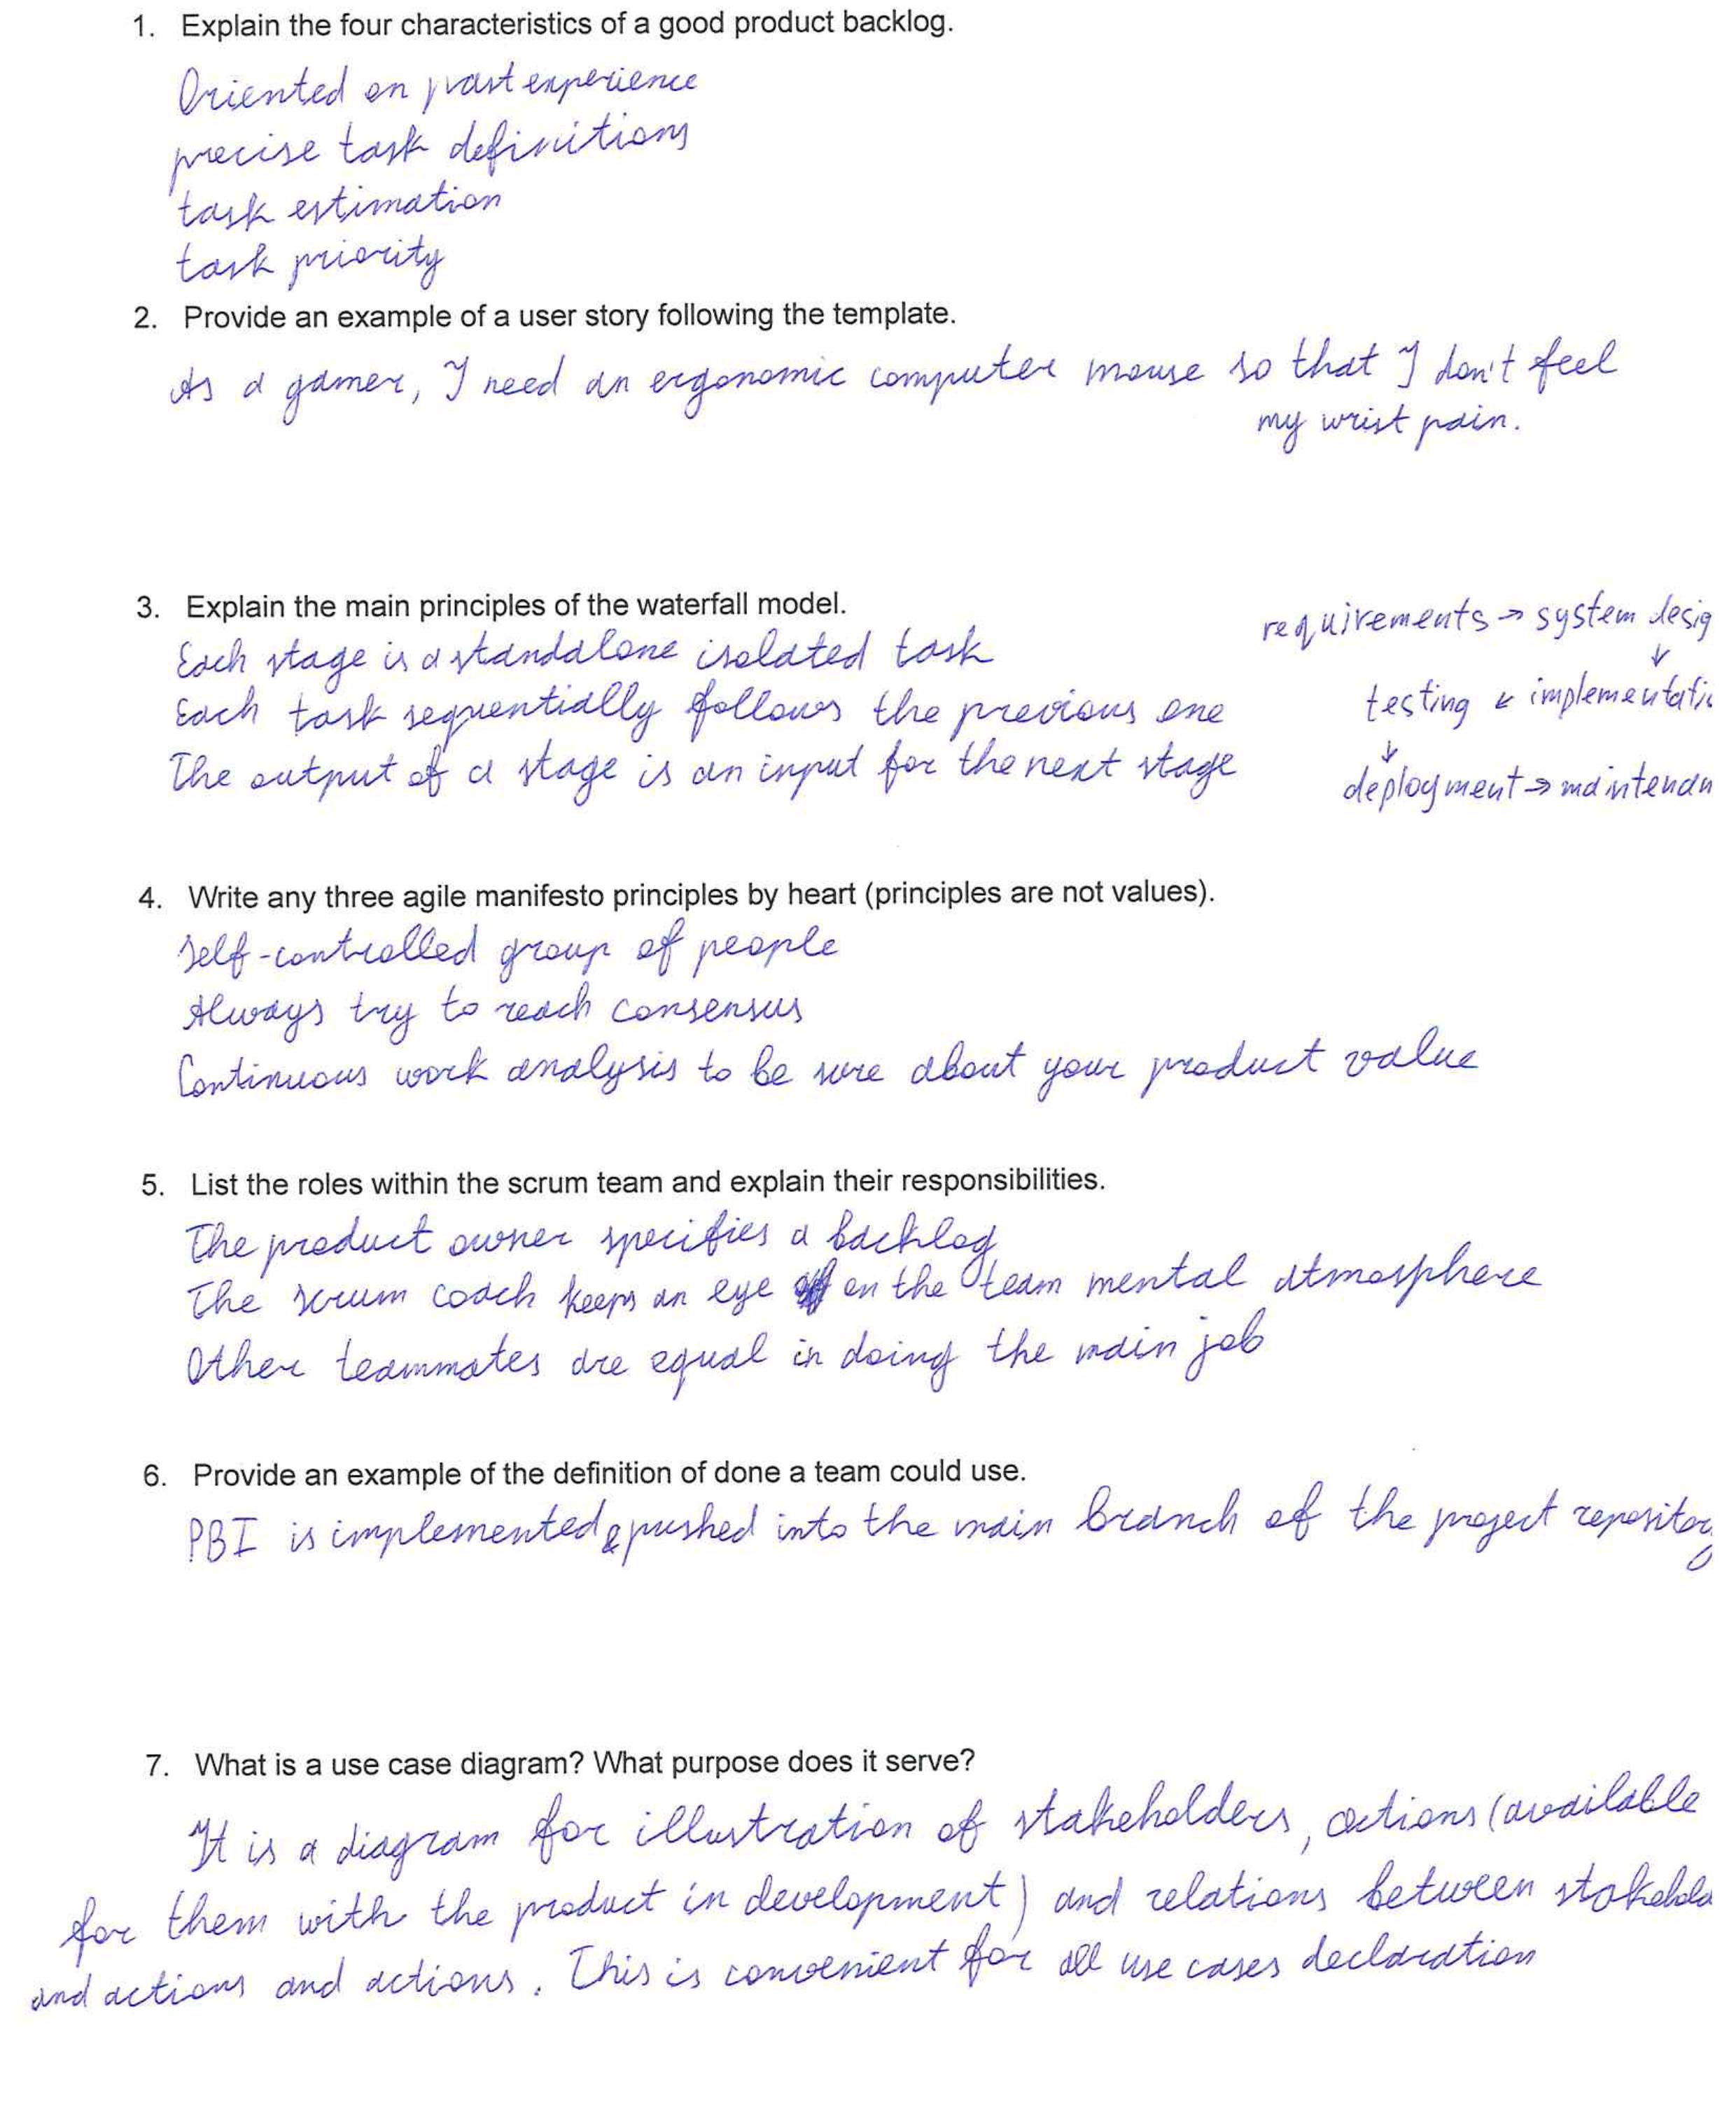 1. Explain the four characteristics of a good product backlog.
Oriented on past experience
precise task definitions
task estimation
task priority
2. Provide an example of a user story following the template.
As a gamer, I need an ergonomic computer mouse so that I don't feel
my wrist pain.
3. Explain the main principles of the waterfall model.
requirements → system desig
Each stage is a standalone isolated task
↓
Each task sequentially follows the previous one
testing ← implementati
The output of a stage is an input for the next stage
↓
deployment → maintenan
4. Write any three agile manifesto principles by heart (principles are not values).
Self-controlled group of people
Always try to reach consensus
Continuous work analysis to be sure about your product value
5. List the roles within the scrum team and explain their responsibilities.
The product owner specifies a backlog
The scrum coach keeps an eye on the team mental atmosphere
Other teammates are equal in doing the main job
6. Provide an example of the definition of done a team could use.
PBI is implemented & pushed into the main branch of the project repository
7. What is a use case diagram? What purpose does it serve?
It is a diagram for illustration of stakeholders, actions (available
for them with the product in development) and relations between stakeholde
and actions and actions. This is convenient for all use cases declaration